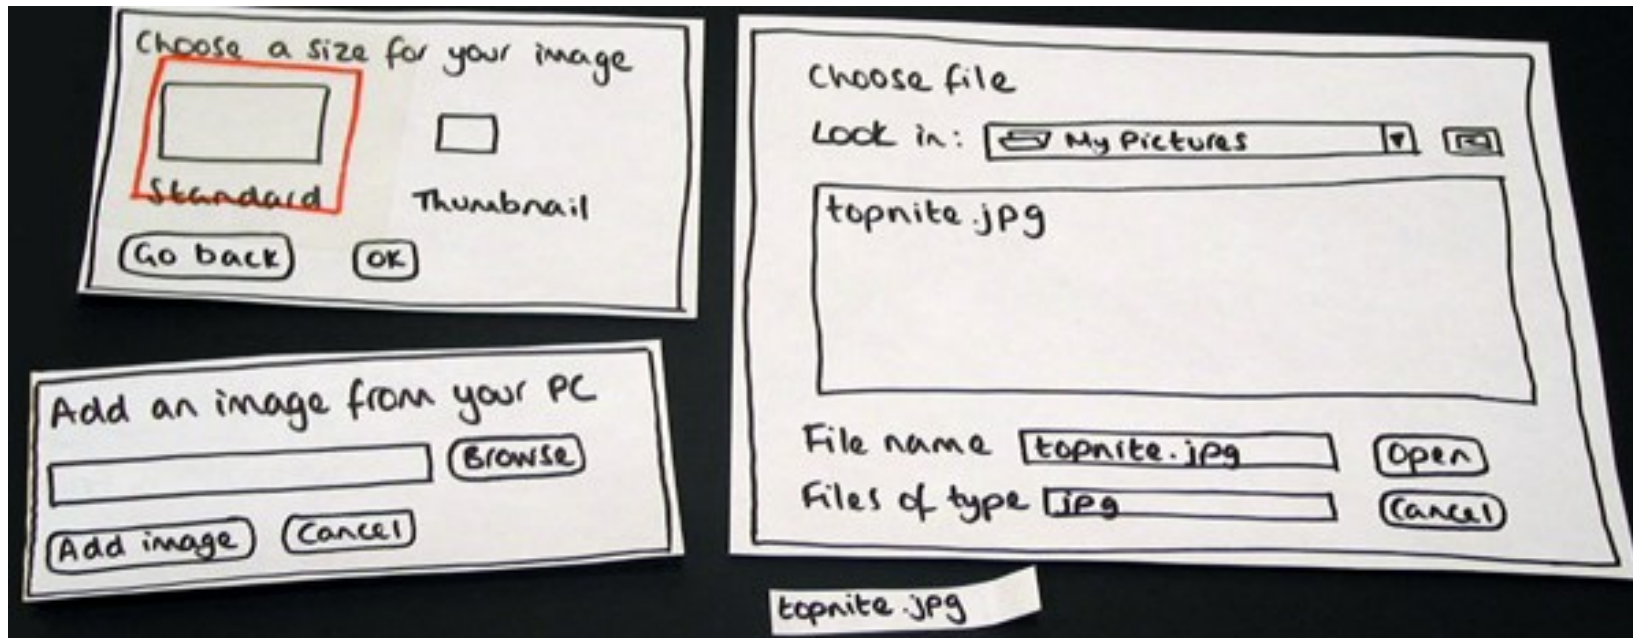 Choose a size for your image
Standard
Thumbnail
Go back
OK
Add an image from your PC
Browse
Add image
Cancel
Choose file
Look in: My Pictures
topnite.jpg
File name topnite.jpg Open
Files of type jpg Cancel
topnite.jpg